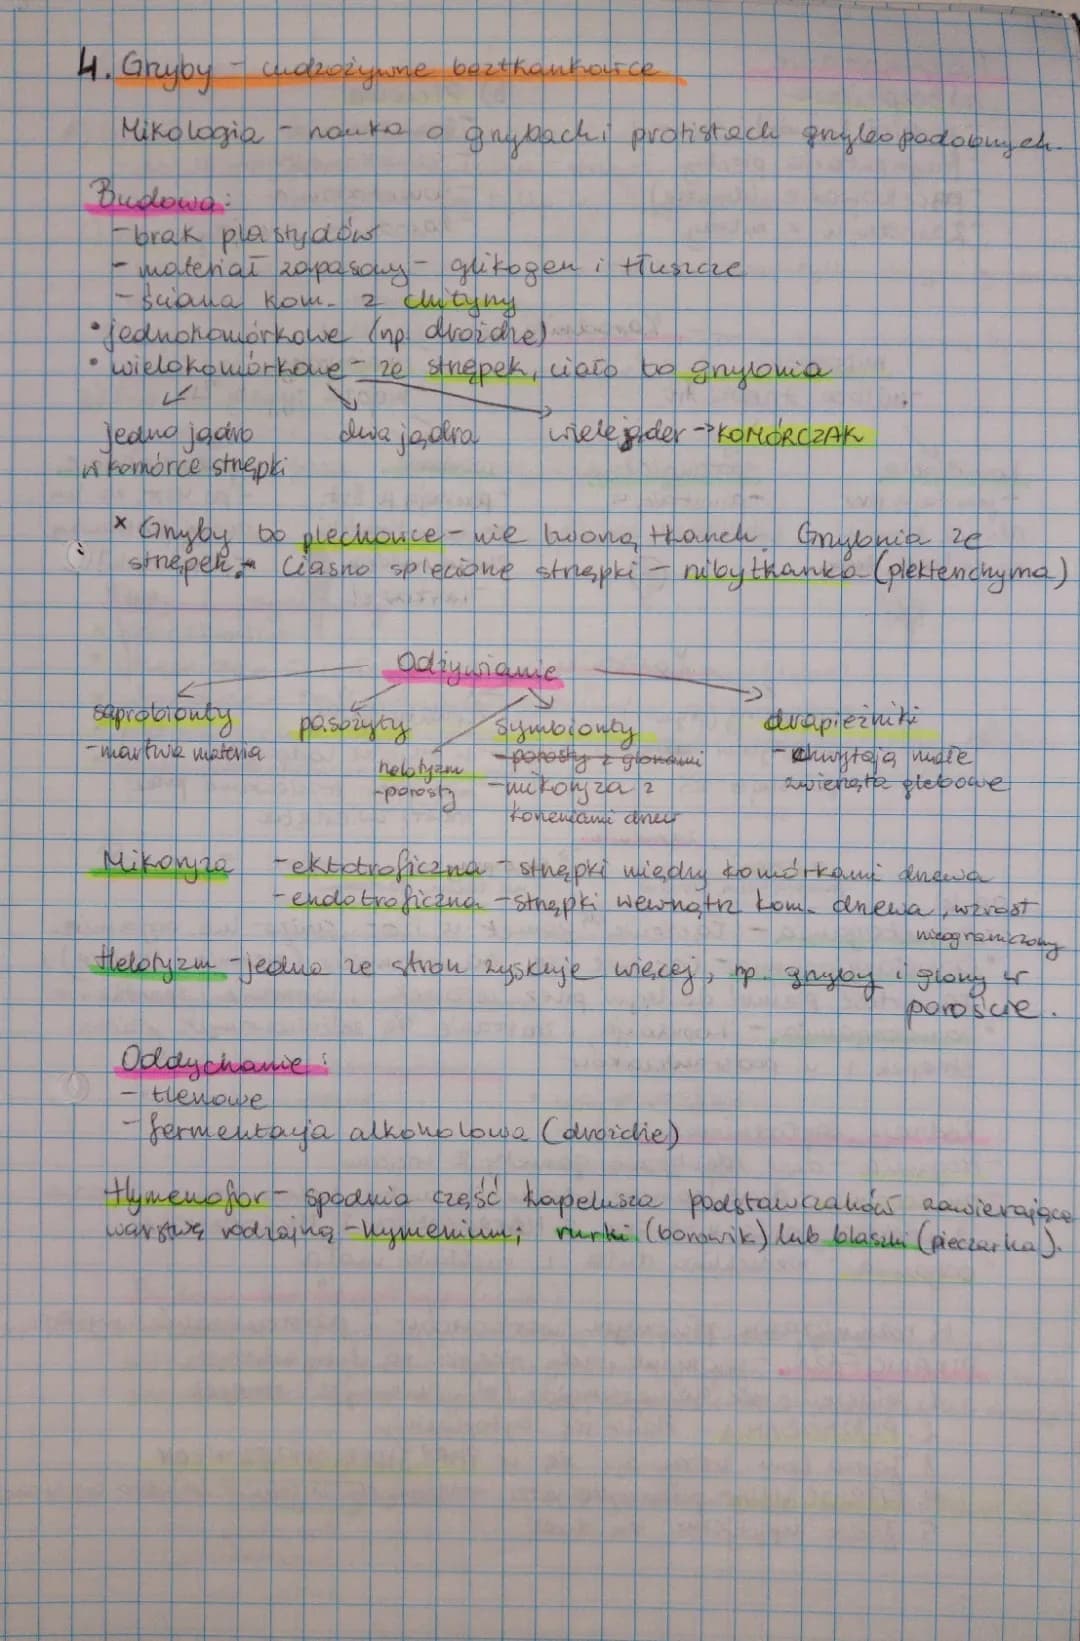 4. Grzyby - cudzożywne beztkankowce
Mikologia - nauka o grzybach i protistach grzybopodobnych.
Budowa:
- brak plastydów
- materiał zapasowy - glikogen i tłuszcze
- ściana kom. z chityny
• jednokomórkowe (np. drożdże)
• wielokomórkowe - ze strzępek, ciało to grzybnia
jedno jądro dwa jądra wiele jąder → KOMÓRCZAK
w komórce strzępki
* Grzyby to plechowce - nie tworzą tkanek. Grzybnia ze
strzępek. Ciasno splecione strzępki - nibytkanka (plektenchyma)
Odżywianie
saprobionty pasożyty symbionty drapieżniki
- martwa materia helotyzm - porosty z glonami - chwytają małe
- porosty - mikoryza z zwierzęta glebowe
korzeniami drzew
Mikoryza - ektotroficzna - strzępki między komórkami drzewa
- endotroficzna - strzępki wewnątrz kom. drzewa, wzrost
nieograniczony
Helotyzm - jedna ze stron zyskuje więcej, np. grzyby i glony w
poroście.
Oddychanie:
- tlenowe
- fermentacja alkoholowa (drożdże)
Hymenofor - spodnia część kapelusza podstawczaków zawierająca
warstwę rodzajną - hymenium; rurki (borowik) lub blaszki (pieczarka).